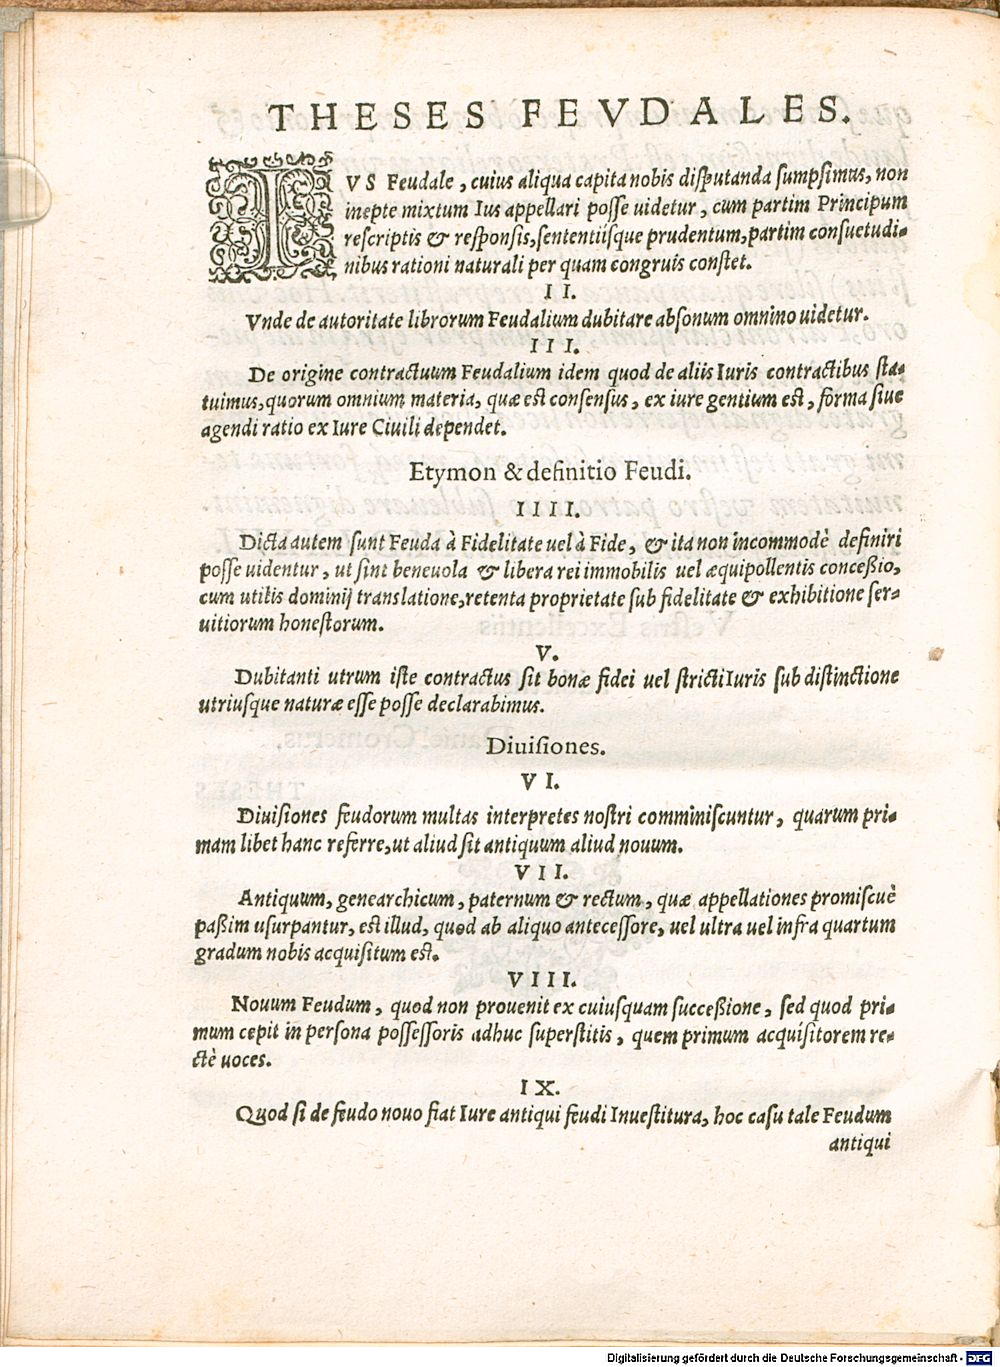 THESES FEVDALES.
IVS Feudale, cuius aliqua capita nobis disputanda sumpsimus, non
inepte mixtum Ius appellari posse uidetur, cum partim Principum
rescriptis & responsis, sententiisque prudentum, partim consuetudi-
nibus rationi naturali per quam congruis constet.
II.
Vnde de autoritate librorum Feudalium dubitare absonum omnino uidetur.
III.
De origine contractuum Feudalium idem quod de aliis Iuris contractibus sta-
tuimus, quorum omnium materia, quæ est consensus, ex iure gentium est, forma siue
agendi ratio ex Iure Ciuili dependet.
Etymon & definitio Feudi.
IIII.
Dicta autem sunt Feuda à Fidelitate uel à Fide, & ita non incommodè definiri
posse uidentur, ut sint beneuola & libera rei immobilis uel æquipollentis conceßio,
cum utilis dominij translatione, retenta proprietate sub fidelitate & exhibitione ser-
uitiorum honestorum.
V.
Dubitanti utrum iste contractus sit bonæ fidei uel stricti Iuris sub distinctione
utriusque naturæ esse posse declarabimus.
Diuisiones.
VI.
Diuisiones feudorum multas interpretes nostri comminiscuntur, quarum pri-
mam libet hanc referre, ut aliud sit antiquum aliud nouum.
VII.
Antiquum, genearchicum, paternum & rectum, quæ appellationes promiscuè
paßim usurpantur, est illud, quod ab aliquo antecessore, uel ultra uel infra quartum
gradum nobis acquisitum est.
VIII.
Nouum Feudum, quod non prouenit ex cuiusquam succeßione, sed quod pri-
mum cepit in persona possessoris adhuc superstitis, quem primum acquisitorem re-
ctè uoces.
IX.
Quod si de feudo nouo fiat Iure antiqui feudi Inuestitura, hoc casu tale Feudum
antiqui
Digitalisierung gefördert durch die Deutsche Forschungsgemeinschaft - DFG